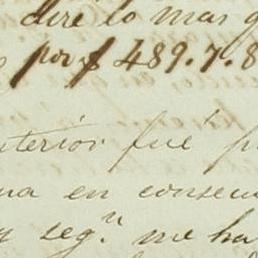 dire lo mas
por $ 489.7.8
terior fué
na en consecu
seg.n me ha